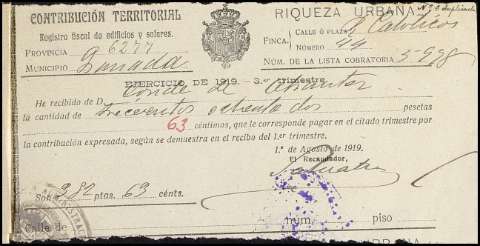 CONTRIBUCIÓN TERRITORIAL
Registro fiscal de edificios y solares.
PROVINCIA 6277
MUNICIPIO Granada
RIQUEZA URBANA
Nº 3 duplicado
FINCA
CALLE Ó PLAZA R. Catolicos
NÚMERO 44
NÚM. DE LA LISTA COBRATORIA 3-998
EJERCICIO DE 1919. 3.er trimestre.
He recibido de D Conde de
la cantidad de trescientos ochenta dos pesetas
63 céntimos, que le corresponde pagar en el citado trimestre por
la contribución expresada, según se demuestra en el recibo del 1.er trimestre.
1.º de Agosto de 1919.
El Recaudador,
Son 382 ptas. 63 cénts.
Calle de núm. piso